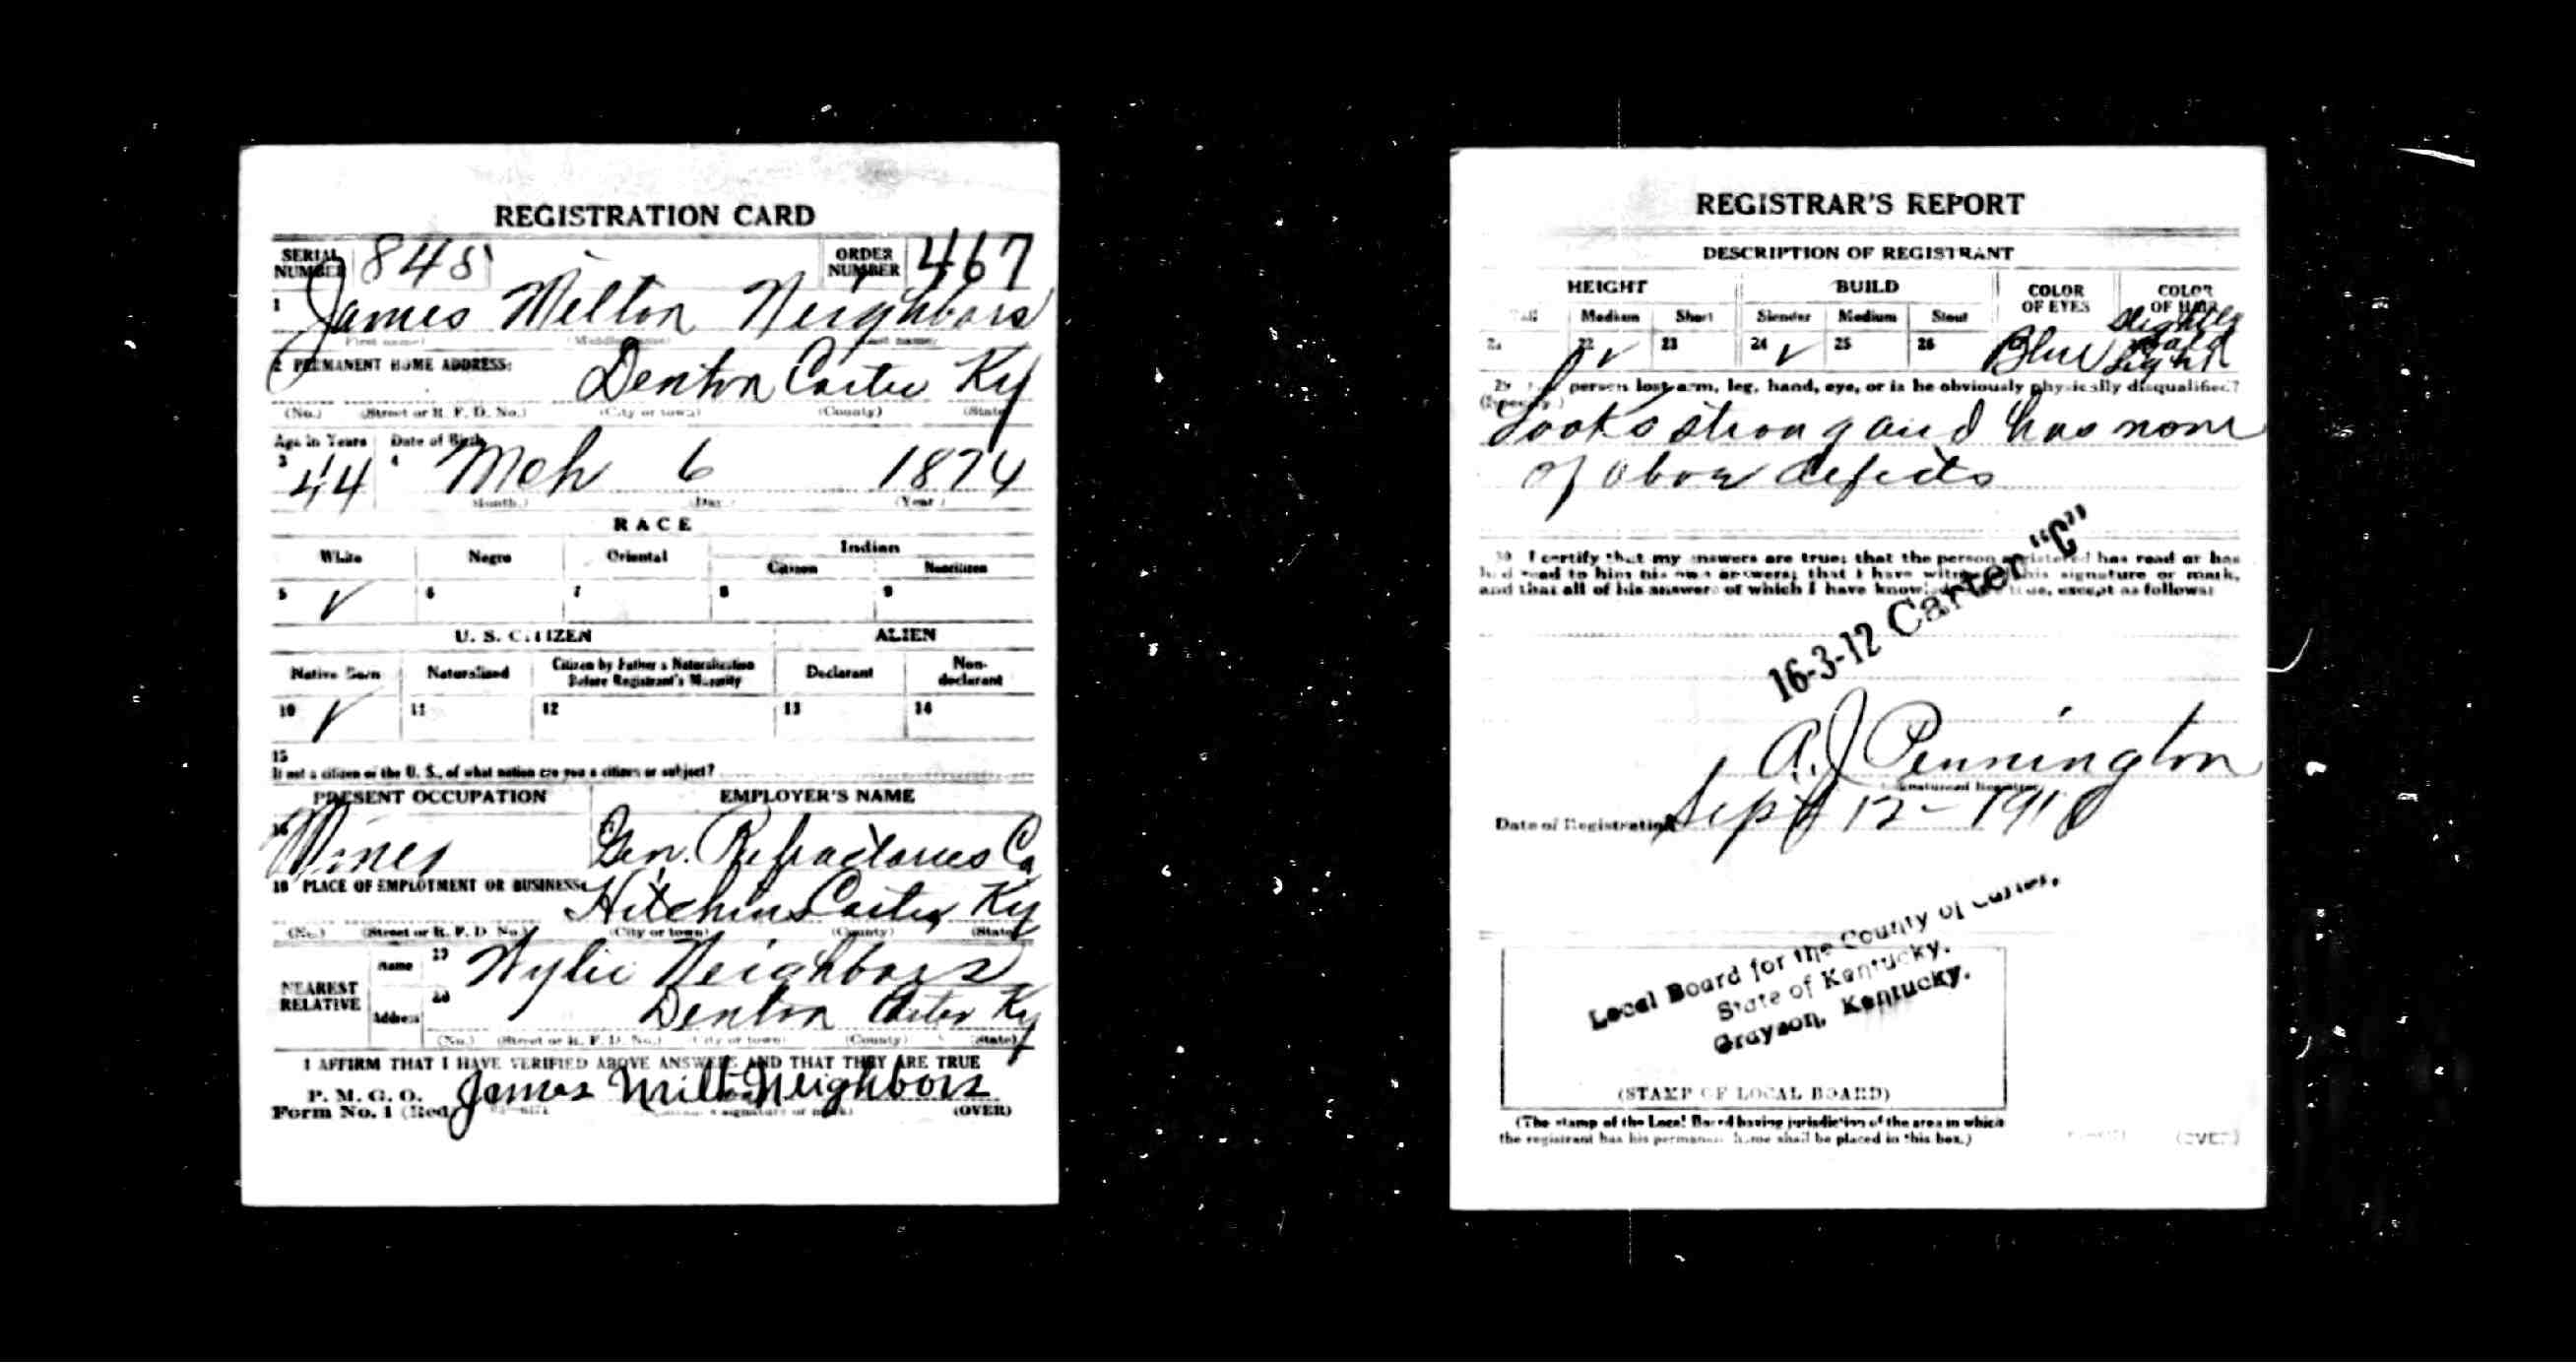 REGISTRATION CARD
SERIAL NUMBER 848 ORDER NUMBER 467
1 James Milton Neighbors
(First name) (Middle name) (Last name)
2 PERMANENT HOME ADDRESS:
Denton Carter Ky
(No.) (Street or R. F. D. No.) (City or town) (County) (State)
Age in Years Date of Birth
3 44 4 Mch 6 1874
(Month.) (Day.) (Year.)
RACE
White Negro Oriental Indian
Citizen Noncitizen
5 ✓ 6 7 8 9
U. S. CITIZEN ALIEN
Native Born Naturalized Citizen by Father's Naturalization Before Registrant's Majority Declarant Non-declarant
10 ✓ 11 12 13 14
15
If not a citizen of the U. S., of what nation are you a citizen or subject?
PRESENT OCCUPATION EMPLOYER'S NAME
16 Miner Gen. Refractories Co
18 PLACE OF EMPLOYMENT OR BUSINESS:
Hitchins Carter Ky
(No.) (Street or R. F. D. No.) (City or town) (County) (State)
NEAREST RELATIVE Name 19 Wylie Neighbors
Address 20 Denton Carter Ky
(No.) (Street or R. F. D. No.) (City or town) (County) (State)
I AFFIRM THAT I HAVE VERIFIED ABOVE ANSWERS AND THAT THEY ARE TRUE
P. M. G. O.
Form No. 1 (Red) James Milton Neighbors
(OVER)
REGISTRAR'S REPORT
DESCRIPTION OF REGISTRANT
HEIGHT BUILD COLOR OF EYES COLOR OF HAIR
Tall Medium Short Slender Medium Stout
21 22 ✓ 23 24 ✓ 25 26 Blue Slightly bald light
29 person lost arm, leg, hand, eye, or is he obviously physically disqualified?
(Specify.)
Looks strong and has none
of above defects
30 I certify that my answers are true; that the person registered has read or has
had read to him his own answers; that I have witnessed his signature or mark,
and that all of his answers of which I have knowledge are true, except as follows:
16-3-12 Carter "C"
A. J. Pennington
(Signature of Registrar)
Date of Registration Sept 12-1918
Local Board for the County of Carter,
State of Kentucky.
Grayson, Kentucky.
(STAMP OF LOCAL BOARD)
(The stamp of the Local Board having jurisdiction of the area in which
the registrant has his permanent home shall be placed in this box.)
(OVER)